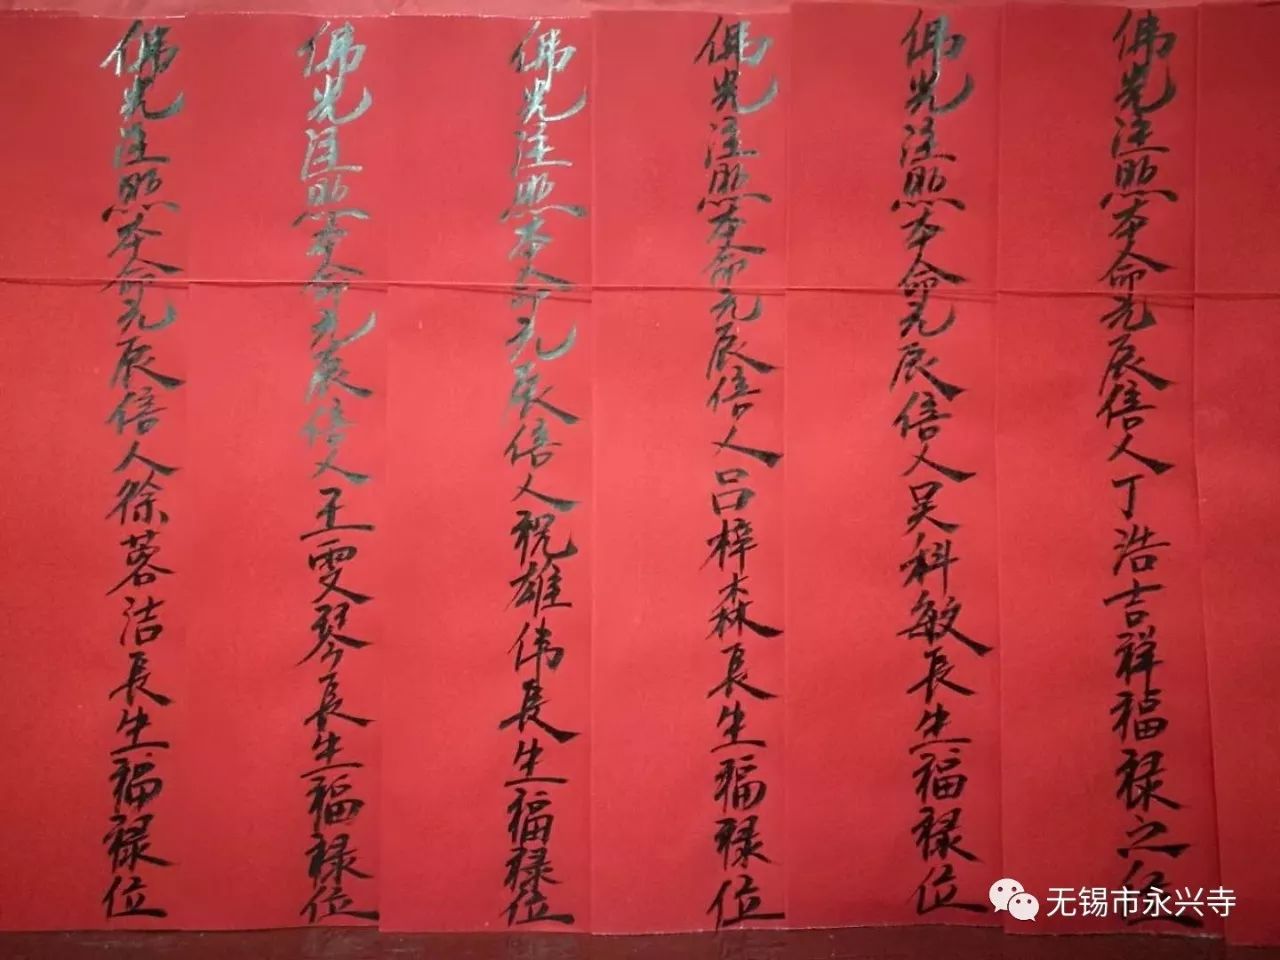 佛光注照本命元辰信人丁浩吉祥福禄之位
佛光注照本命元辰信人吴科敏長生福禄位
佛光注照本命元辰信人吕梓森長生福禄位
佛光注照本命元辰信人祝雄伟長生福禄位
佛光注照本命元辰信人王雯琴長生福禄位
佛光注照本命元辰信人徐蓉洁長生福禄位
无锡市永兴寺